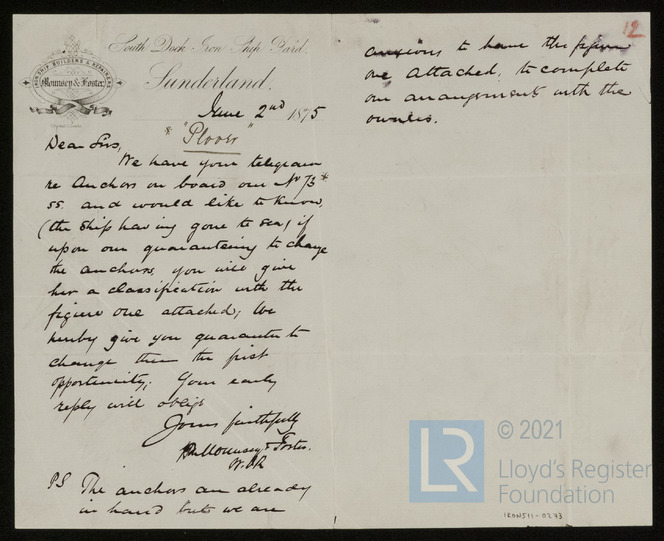 South Dock Iron Ship Yard.
IRON SHIP BUILDERS & REPAIRERS
Mounsey & Foster
Sunderland.
June 2nd 1875
"Plover"
Dear Sirs,
We have your telegram
re Anchors on board our No 73 *
ss. and would like to know,
(the ship having gone to sea) if
upon our guaranteeing to change
the anchors, you will give
her a classification with the
figure one attached; We
hereby give you guarantee to
change them the first
opportunity. Your early
reply will oblige
Yours faithfully
Mounsey & Foster.
PS The anchors are already
in hand but we are
anxious to have the figure
one attached, to complete
our arrangements with the
owners.
12
LR
© 2021
Lloyd's Register
Foundation
IRON511-0273